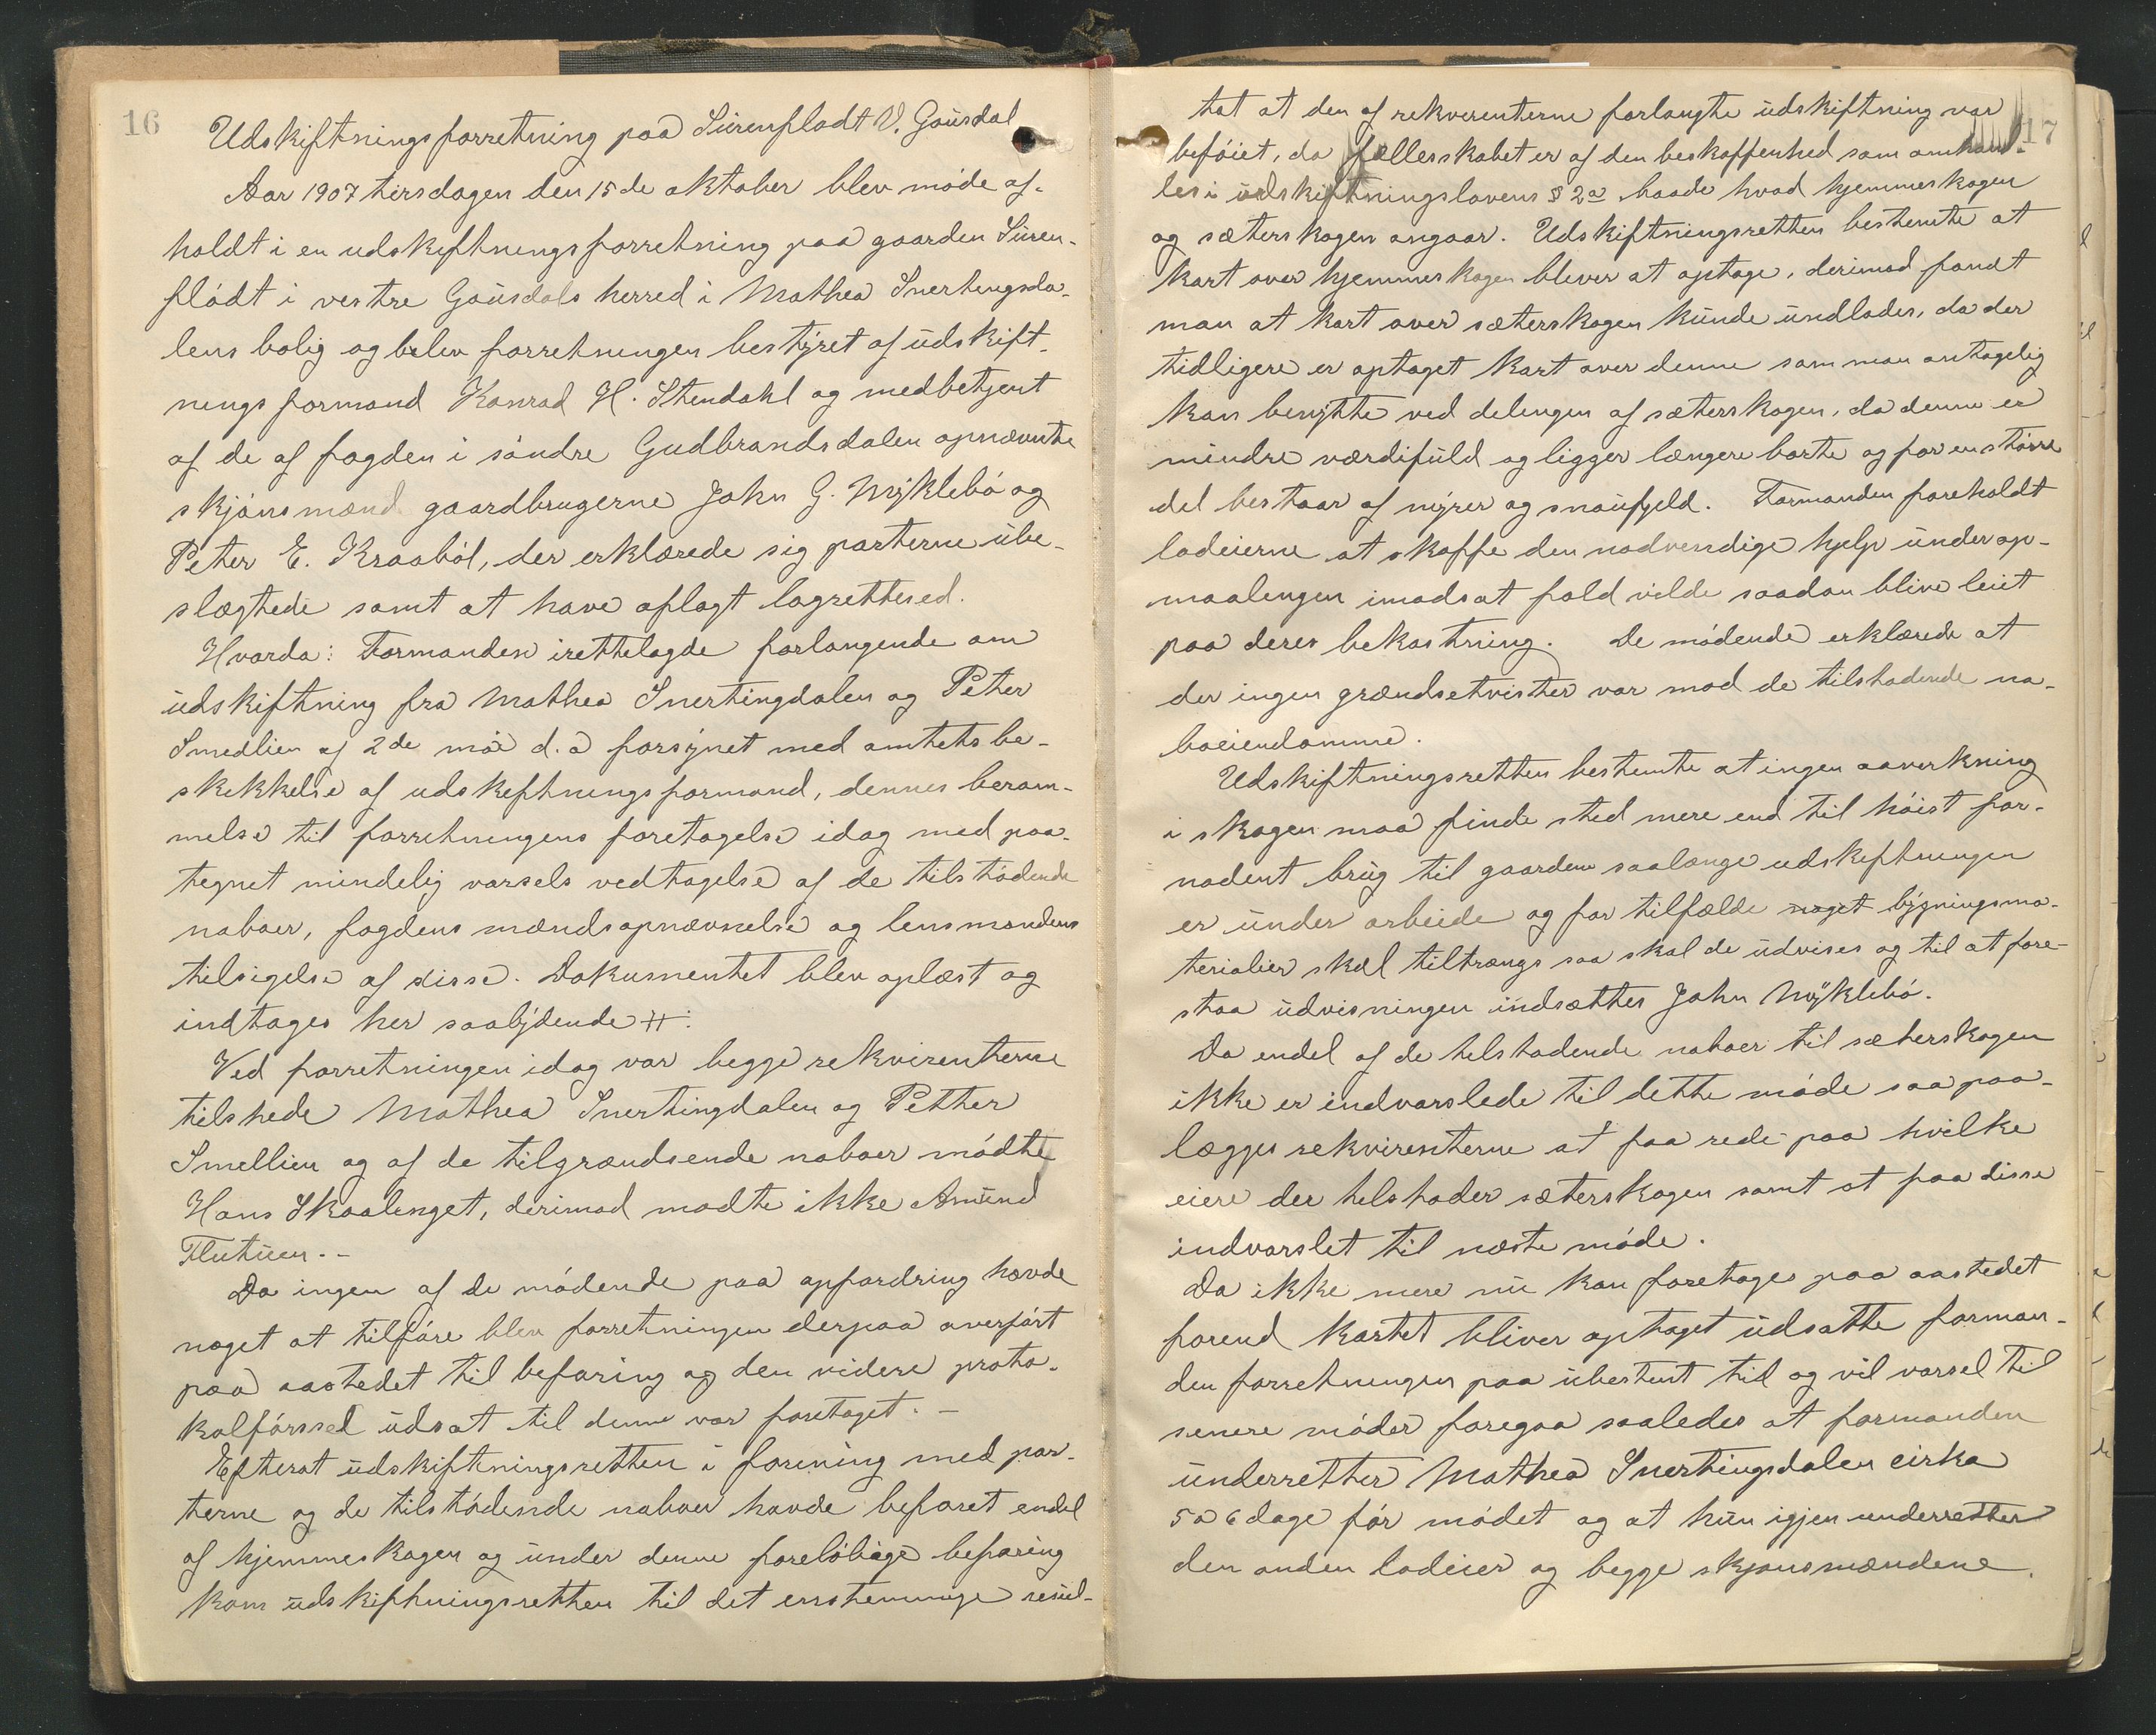 16
Udskiftningsforretning paa Surenflødt V. Gausdal
Aar 1907 tirsdagen den 15de oktober blev møde af-
holdt i en udskiftningsforretning paa gaarden Suren-
flødt i vestre Gausdals herred i Mathea Snertengsda-
lens bolig og blev forretningen bestyret af udskift-
nings formand Konrad H. Stendahl og medbetjent
af de af fogden i søndre Gudbrandsdalen opnævnte
skjønsmænd gaardbrugerne John G. Myklebø og
Peter E. Kraabøl, der erklærede sig parterne ube-
slægtede samt at have aflagt lagrettesed.
Hvorda: Formanden irettelagde forlangende om
udskiftning fra Mathea Snertingdalen og Peter
Smedlien af 2de mai d.a forsynet med amtets be-
skikkelse af udskiftningsformand, dennes beram-
melse til forretningens foretagelse idag med paa-
tegnet mindelig varsels vedtagelse af de tilstødende
naboer, fogdens mændsopnævnelse og lensmandens
tilsigelse af disse. Dokumentet blev oplæst og
indtages her saalydende #:
Ved forretningen idag var begge rekvirenterne
tilstede Mathea Snertingdalen og Petter
Smellien og af de tilgrændsende naboer mødte
Hans Skaalenget, derimod mødte ikke Amund
Flutuen.-
Da ingen af de mødende paa opfordring havde
noget at tilføre blev forretningen derpaa overført
paa aastedet til befaring og den videre proto-
kolførssel udsat til denne var foretaget.-
Efterat udskiftningsretten i forening med par-
terne og de tilstødende naboer havde befaret endel
af hjemmeskogen og under denne foreløbige befaring
kom udskiftningsretten til det enstemmige resul-
17
tat at den af rekverenterne forlangte udskiftning var
beføiet, da fællesskabet er af den beskaffenhed som omhand-
les i udskiftningslovens § 2a baade hvad hjemmeskogen
og sæterskogen angaar. Udskiftningsretten bestemte at
kart over hjemmeskogen bliver at optage, derimod fandt
man at kart over sæterskogen kunde undlades, da der
tidligere er optaget kart over denne som man antagelig
kan benytte ved delingen af sæterskogen, da denne er
mindre værdifuld og ligger længere borte og for en større
del bestaar af myrer og snaufjeld. Formanden foreholdt
lodeierne at skaffe den nødvendige hjelp under op-
maalengen imodsat fald vilde saadan blive leiet
paa deres bekostning. De mødende erklærede at
der ingen grændsetvister var mod de tilstødende na-
boeiendomme.
Udskiftningsretten bestemte at ingen aaverkning
i skogen maa finde sted mere end til høist for-
nødent brug til gaardene saalænge udskiftningen
er under arbeide og for tilfælde noget bygningsma-
terialier skal tiltrængs saa skal de udvises og til at fore-
staa udvisningen indsættes John Myklebø.
Da endel af de tilstødende naboer til sæterskogen
ikke er indvarslede til dette møde saa paa-
lægges rekvirenterne at faa rede paa hvilke
eiere der tilstøder sæterskogen samt at faa disse
indvarslet til næste møde.
Da ikke mere nu kan foretages paa aastedet
førend kartet bliver optaget udsatte forman-
den forretningen paa ubestemt tid og vil varsel til
senere møder foregaa saaledes at formanden
underretter Mathea Snertingsdalen cirka
5 a 6 dage før mødet og at hun igjen underretter
den anden lodeier og begge skjønsmændene.